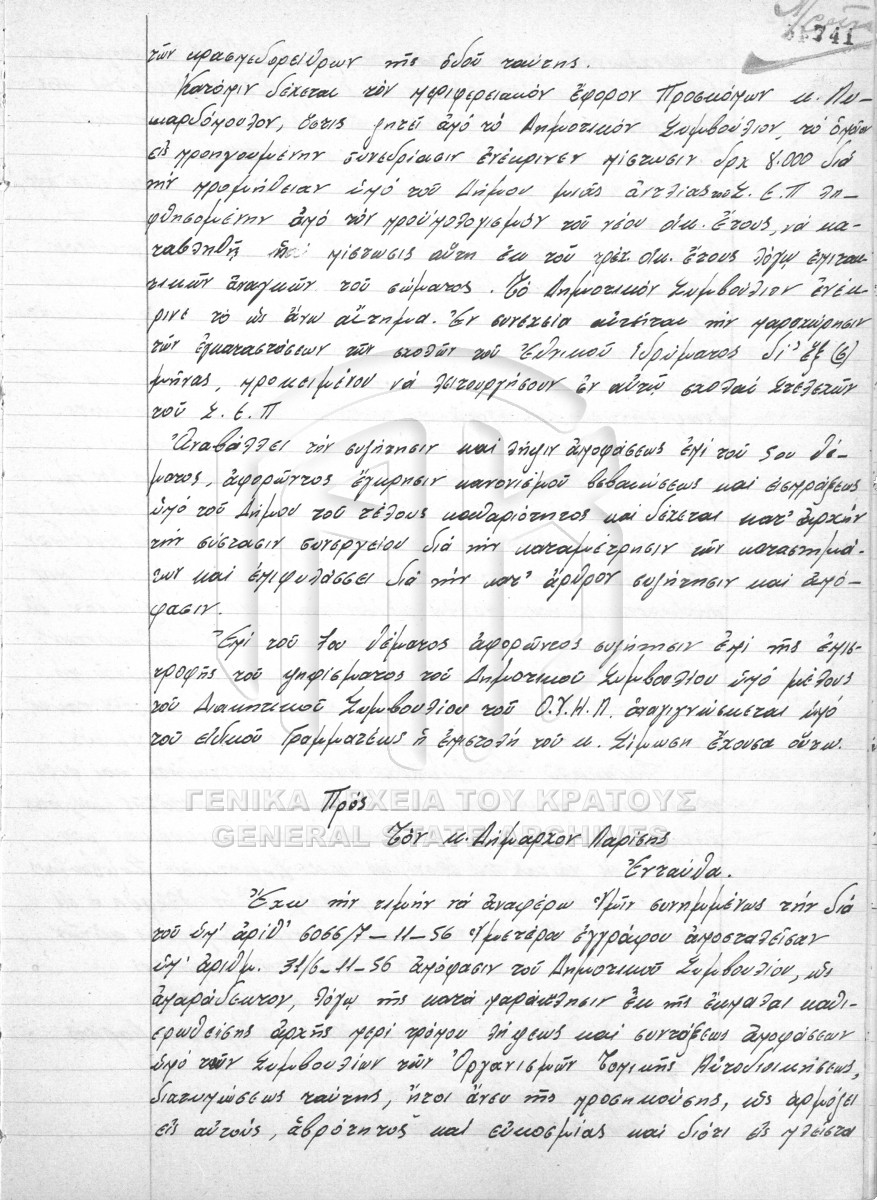 741
τῶν κρασπεδορείθρων τῆς ὁδοῦ ταύτης.
Κατόπιν δέχεται τὸν περιφερειακὸν ἔφορον Προσκόπων κ. Λυ-
καρδόπουλον, ὅστις ζητεῖ ἀπό τό Δημοτικόν Συμβούλιον, τό ὁποῖον
εἰς προηγουμένην συνεδρίασιν ἐνέκρινεν πίστωσιν δρχ 8.000 διά
τήν προμήθειαν ὑπό τοῦ Δήμου μιᾶς ἀντλίας τοῦ Σ.Ε.Π λη-
φθησομένην ἀπό τόν προϋπολογισμόν τοῦ νέου οἰκ. ἔτους, νά κα-
ταβληθῇ ἡ πίστωσις αὕτη ἐκ τοῦ τρέχ. οἰκ. ἔτους λόγῳ ἐπιτακ-
τικῶν ἀναγκῶν τοῦ σώματος. Τό Δημοτικόν Συμβούλιον ἐνέκ-
ρινε τό ὡς ἄνω αἴτημα. Ἐν συνεχείᾳ αἰτεῖται τήν παραχώρησιν
τῶν ἐγκαταστάσεων τῶν σχολῶν τοῦ Ἐθνικοῦ Ἱδρύματος δι' ἕξ (6)
μῆνας, προκειμένου νά λειτουργήσουν ἐν αὐτῷ σχολαί Στελεχῶν
τοῦ Σ.Ε.Π
Ἀναβάλλει τήν συζήτησιν καί λῆψιν ἀποφάσεως ἐπί τοῦ 5ου θέ-
ματος, ἀφορῶντος ἔγκρισιν κανονισμοῦ βεβαιώσεως καί εἰσπράξεως
ὑπό τοῦ Δήμου τοῦ τέλους καθαριότητος καί δέχεται κατ' ἀρχήν
τήν σύστασιν συνεργείου διά τήν καταμέτρησιν τῶν καταστημά-
των καί ἐπιφυλάσσει διά τήν κατ' ἄρθρον συζήτησιν καί ἀπό-
φασιν.
Ἐπί τοῦ 7ου θέματος ἀφορῶντος συζήτησιν ἐπί τῆς ἐπισ-
τροφῆς τοῦ ψηφίσματος τοῦ Δημοτικοῦ Συμβουλίου ὑπό μέλους
τοῦ Διοικητικοῦ Συμβουλίου τοῦ Ο.Υ.Η.Λ. ἀναγιγνώσκεται ὑπό
τοῦ εἰδικοῦ Γραμματέως ἡ ἐπιστολή τοῦ κ. Σίμωση ἔχουσα οὕτω.
ΓΕΝΙΚΑ ΑΡΧΕΙΑ ΤΟΥ ΚΡΑΤΟΥΣ
GENERAL STATE ARCHIVES
Πρός
Τόν κ. Δήμαρχον Λαρίσης
Ἐνταῦθα.
Ἔχω τήν τιμήν νά ἀναφέρω Ὑμῖν συνημμένως τήν διά
τοῦ ὑπ' ἀριθ' 6066/7-11-56 Ὑμετέρου ἐγγράφου ἀποσταλεῖσαν
ὑπ' ἀριθμ. 31/6-11-56 ἀπόφασιν τοῦ Δημοτικοῦ Συμβουλίου, ὡς
ἀπαράδεκτον, λόγῳ τῆς κατά παρέκκλησιν ἐκ τῆς ἔκπαλαι καθι-
ερωθείσης ἀρχῆς περί τρόπου λήψεως καί συντάξεως ἀποφάσεων
ὑπό τῶν Συμβουλίων τῶν Ὀργανισμῶν Τοπικῆς Αὐτοδιοικήσεως,
διατυπώσεως ταύτης, ἤτοι ἄνευ τῆς προσηκούσης, ὡς ἁρμόζει
εἰς αὐτούς, ἁβρότητος καί εὐκοσμίας καί διότι εἰς πλεῖστα